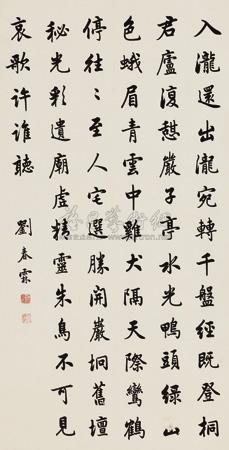 入瀧還出瀧宛轉千盤經既登桐
君廬復憇嚴子亭水光鴨頭綠山
色蛾眉青雲中雞犬隔天際鸞鶴
停往〻至人宅選勝開巖坰舊壇
秘光彩遺廟虛精靈朱鳥不可見
哀歌許誰聽
劉春霖